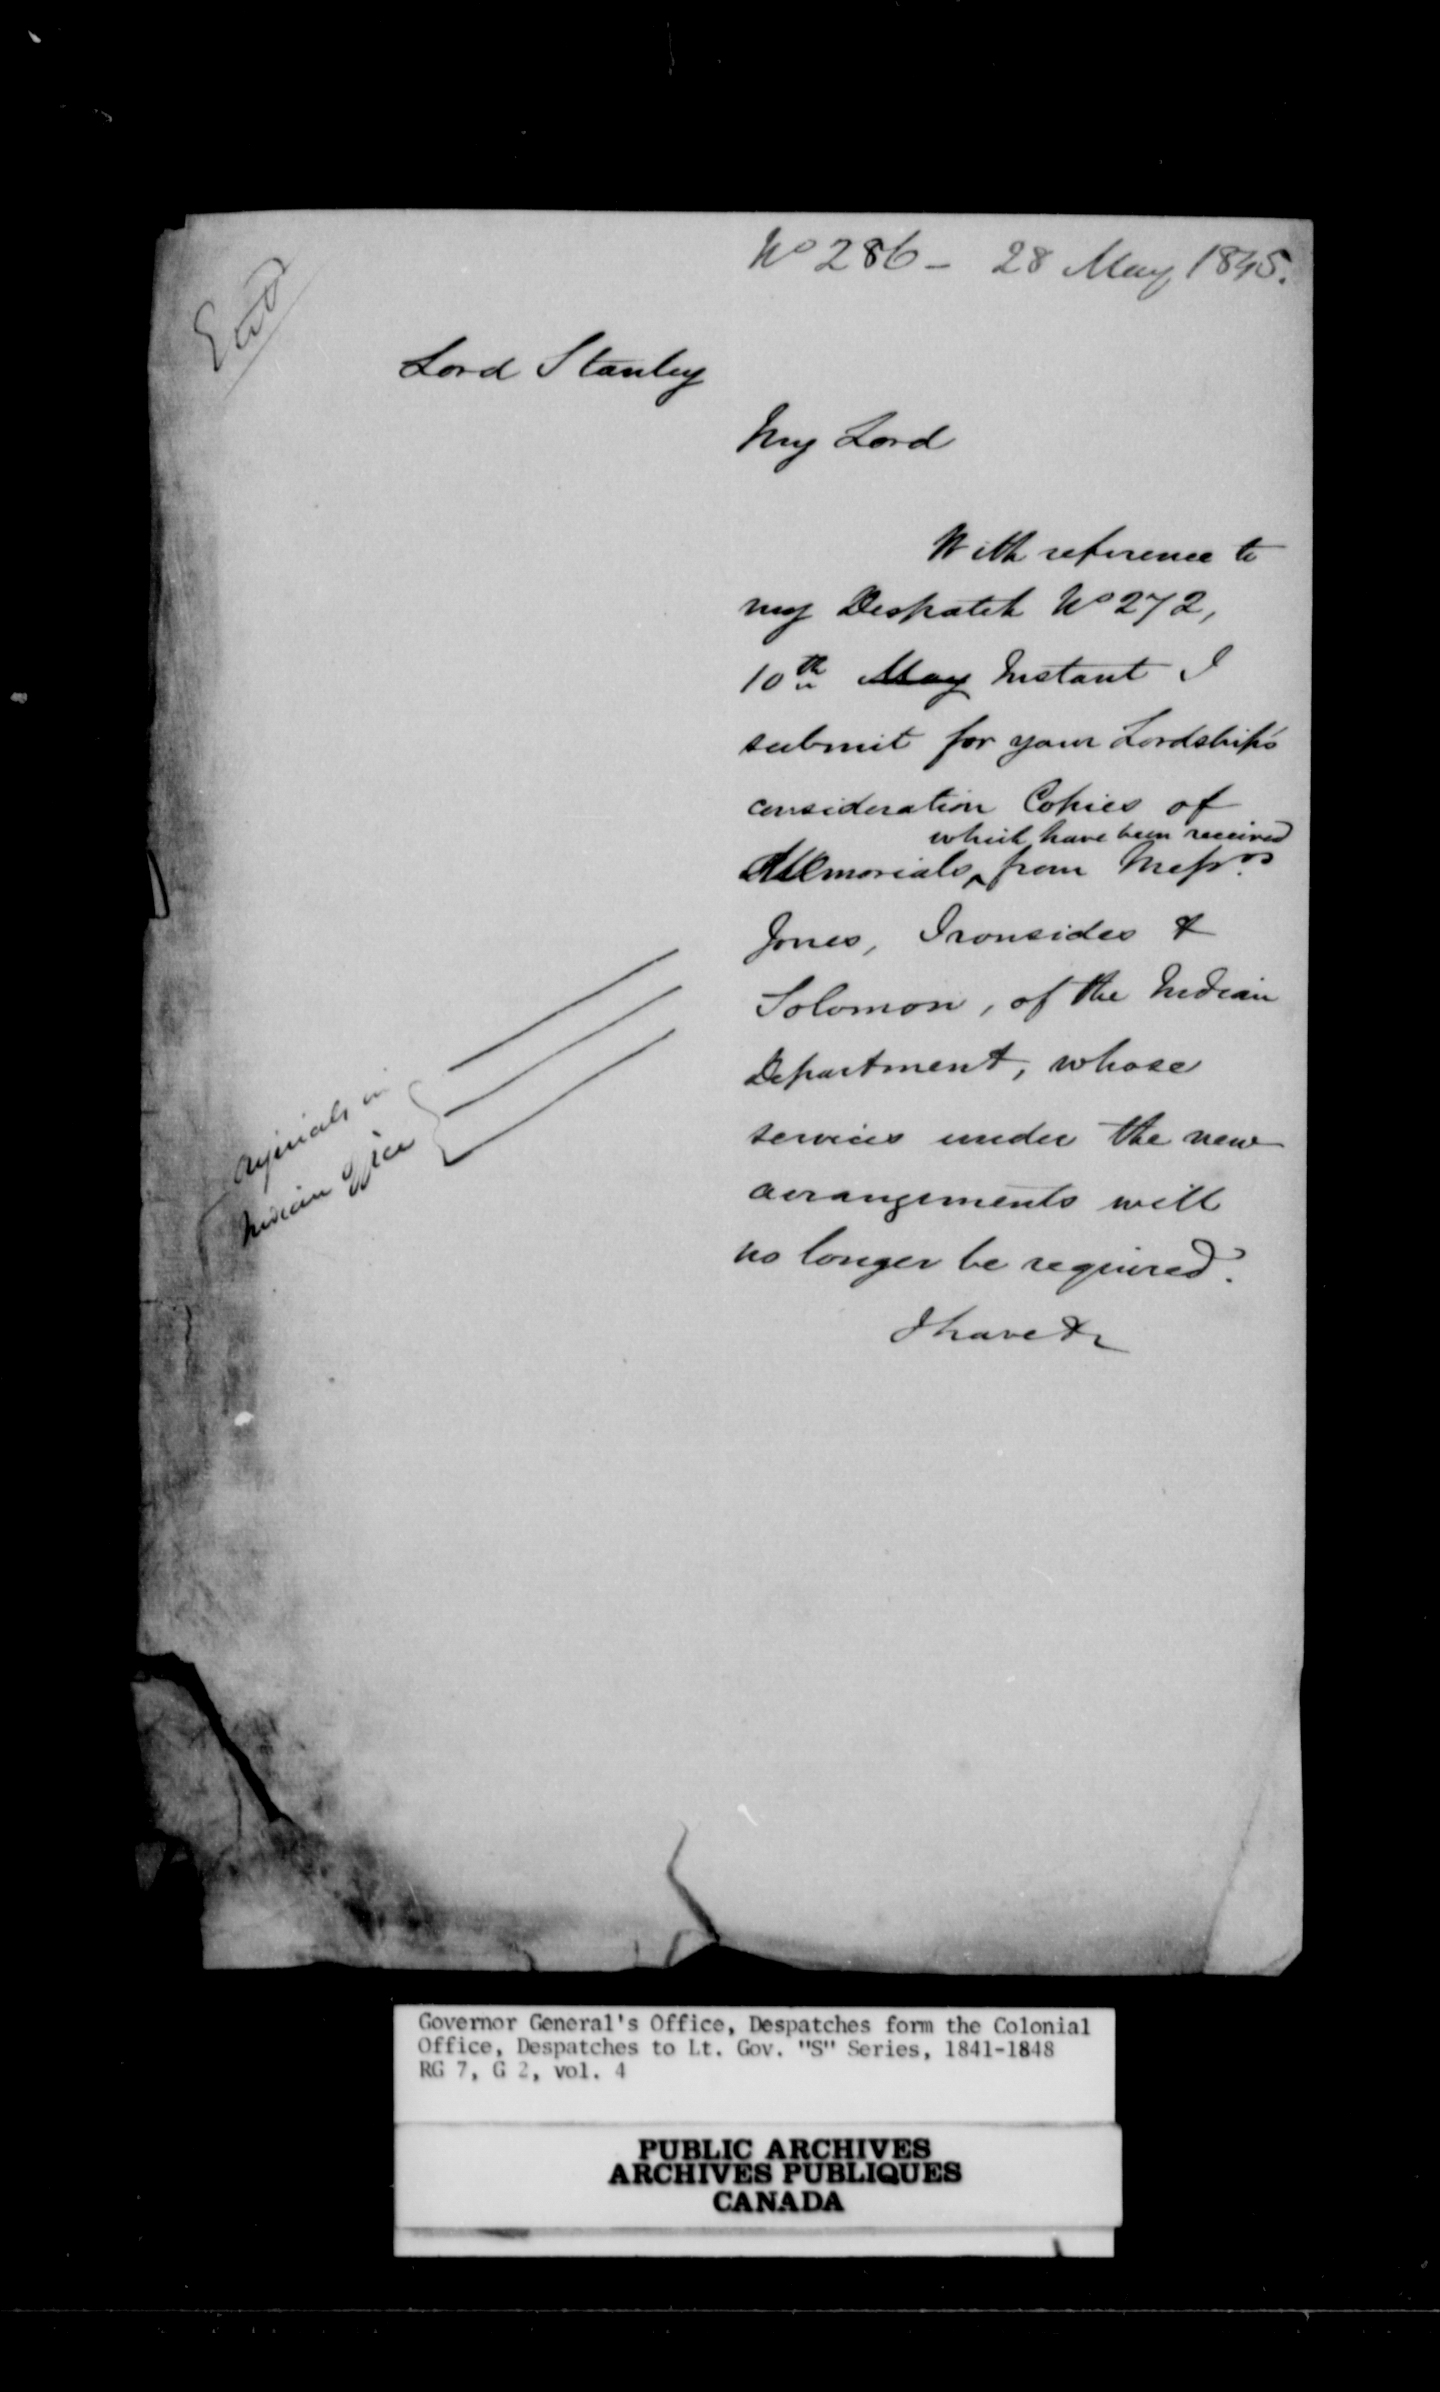 Entd
No 286 - 28 May 1845.
Lord Stanley
My Lord
With reference to
my Despatch No 272,
10th May Instant I
submit for your Lordship's
consideration Copies of
which have been received
Memorials ^ from Messrs
Jones, Ironsides &
Solomon, of the Indian
Department, whose
services under the new
arrangements will
no longer be required.
I have &c
Originals in
Indian Office
Governor General's Office, Despatches form the Colonial
Office, Despatches to Lt. Gov. "S" Series, 1841-1848
RG 7, G 2, vol. 4
PUBLIC ARCHIVES
ARCHIVES PUBLIQUES
CANADA